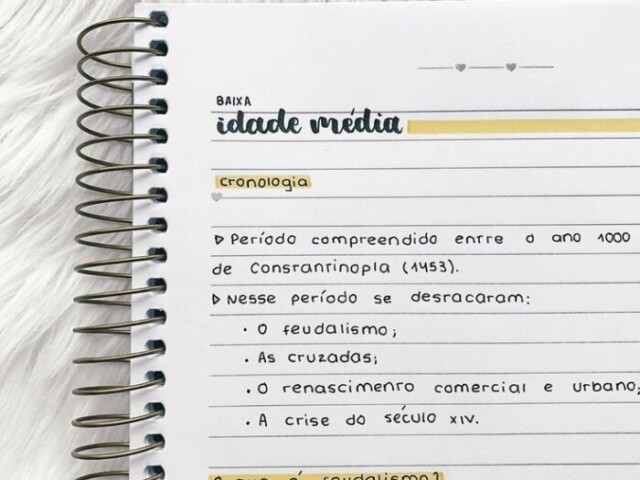 BAIXA
idade média
cronologia
▷ Período compreendido entre o ano 1000
de Constantinopla (1453).
▷ Nesse período se destacaram:
· O feudalismo;
· As cruzadas;
· O renascimento comercial e urbano;
· A crise do século XIV.
O que é feudalismo?